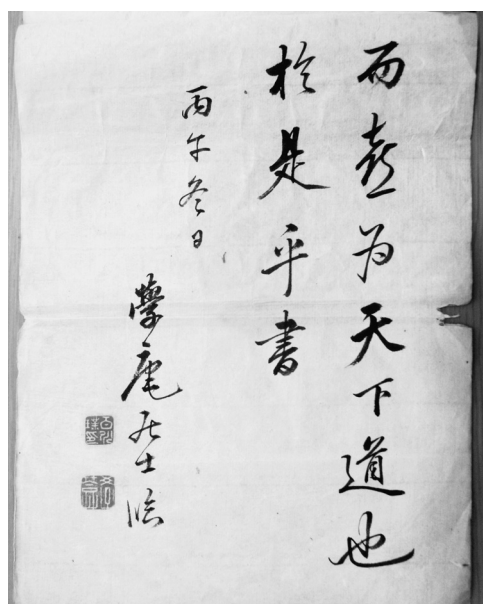 而喜为天下道也
於是乎書
丙午冬日
學庵居士臨